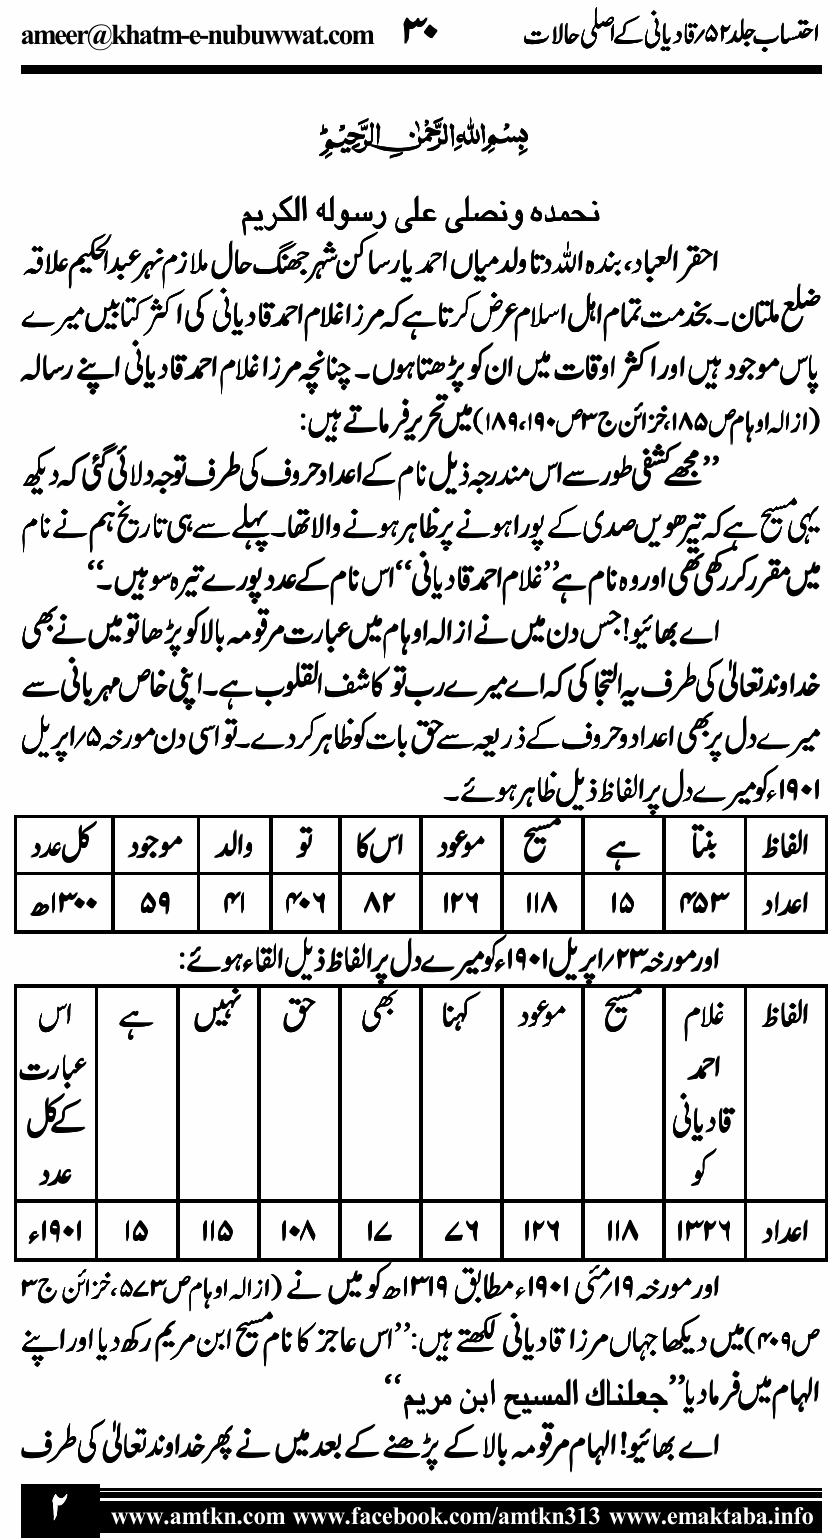 احتساب جلد ۵۲؍ قادیانی کے اصلی حالات ۳۰ ameer@khatm-e-nubuwwat.com
بسم اللہ الرحمٰن الرحیم
نحمدہ ونصلی علی رسولہ الکریم
احقر العباد، بندہ اللہ دتا ولد میاں احمد یار ساکن شہر جھنگ حال ملازم نہر عبدالحکیم علاقہ
ضلع ملتان۔ بخدمت تمام اہل اسلام عرض کرتا ہے کہ مرزا غلام احمد قادیانی کی اکثر کتابیں میرے
پاس موجود ہیں اور اکثر اوقات میں ان کو پڑھتا ہوں۔ چنانچہ مرزا غلام احمد قادیانی اپنے رسالہ
(ازالہ اوہام ص۱۸۵، خزائن ج۳ ص۱۹۰،۱۸۹) میں تحریر فرماتے ہیں:
’’مجھے کشفی طور سے اس مندرجہ ذیل نام کے اعداد حروف کی طرف توجہ دلائی گئی کہ دیکھ
یہی مسیح ہے کہ تیرھویں صدی کے پورا ہونے پر ظاہر ہونے والا تھا۔ پہلے سے ہی تاریخ ہم نے نام
میں مقرر کر رکھی تھی اور وہ نام ہے ’’غلام احمد قادیانی‘‘ اس نام کے عدد پورے تیرہ سو ہیں۔‘‘
اے بھائیو! جس دن میں نے ازالہ اوہام میں عبارت مرقومہ بالا کو پڑھا تو میں نے بھی
خداوند تعالیٰ کی طرف یہ التجا کی کہ اے میرے رب تو کاشف القلوب ہے۔ اپنی خاص مہربانی سے
میرے دل پر بھی اعداد و حروف کے ذریعہ سے حق بات کو ظاہر کر دے۔ تو اسی دن مورخہ ۵؍اپریل
۱۹۰۱ء کو میرے دل پر الفاظ ذیل ظاہر ہوئے۔
الفاظ بنتا ہے مسیح موعود اس کا تو والد موجود کل عدد
اعداد ۴۵۳ ۱۵ ۱۱۸ ۱۲۶ ۸۲ ۴۰۶ ۴۱ ۵۹ ۱۳۰۰ھ
اور مورخہ ۲۳؍اپریل ۱۹۰۱ء کو میرے دل پر الفاظ ذیل القاء ہوئے:
الفاظ غلام مسیح موعود کہنا بھی حق نہیں ہے اس
احمد عبارت
قادیانی کے کل
کو عدد
اعداد ۱۳۲۶ ۱۱۸ ۱۲۶ ۷۶ ۱۷ ۱۰۸ ۱۱۵ ۱۵ ۱۹۰۱ء
اور مورخہ ۱۹؍مئی ۱۹۰۱ء مطابق ۱۳۱۹ھ کو میں نے (ازالہ اوہام ص۵۷۳، خزائن ج۳
ص۴۰۹) میں دیکھا جہاں مرزا قادیانی لکھتے ہیں: ’’اس عاجز کا نام مسیح ابن مریم رکھ دیا اور اپنے
الہام میں فرما دیا ’’جعلناك المسیح ابن مریم‘‘
اے بھائیو! الہام مرقومہ بالا کے پڑھنے کے بعد میں نے پھر خداوند تعالیٰ کی طرف
۲ www.amtkn.com www.facebook.com/amtkn313 www.emaktaba.info